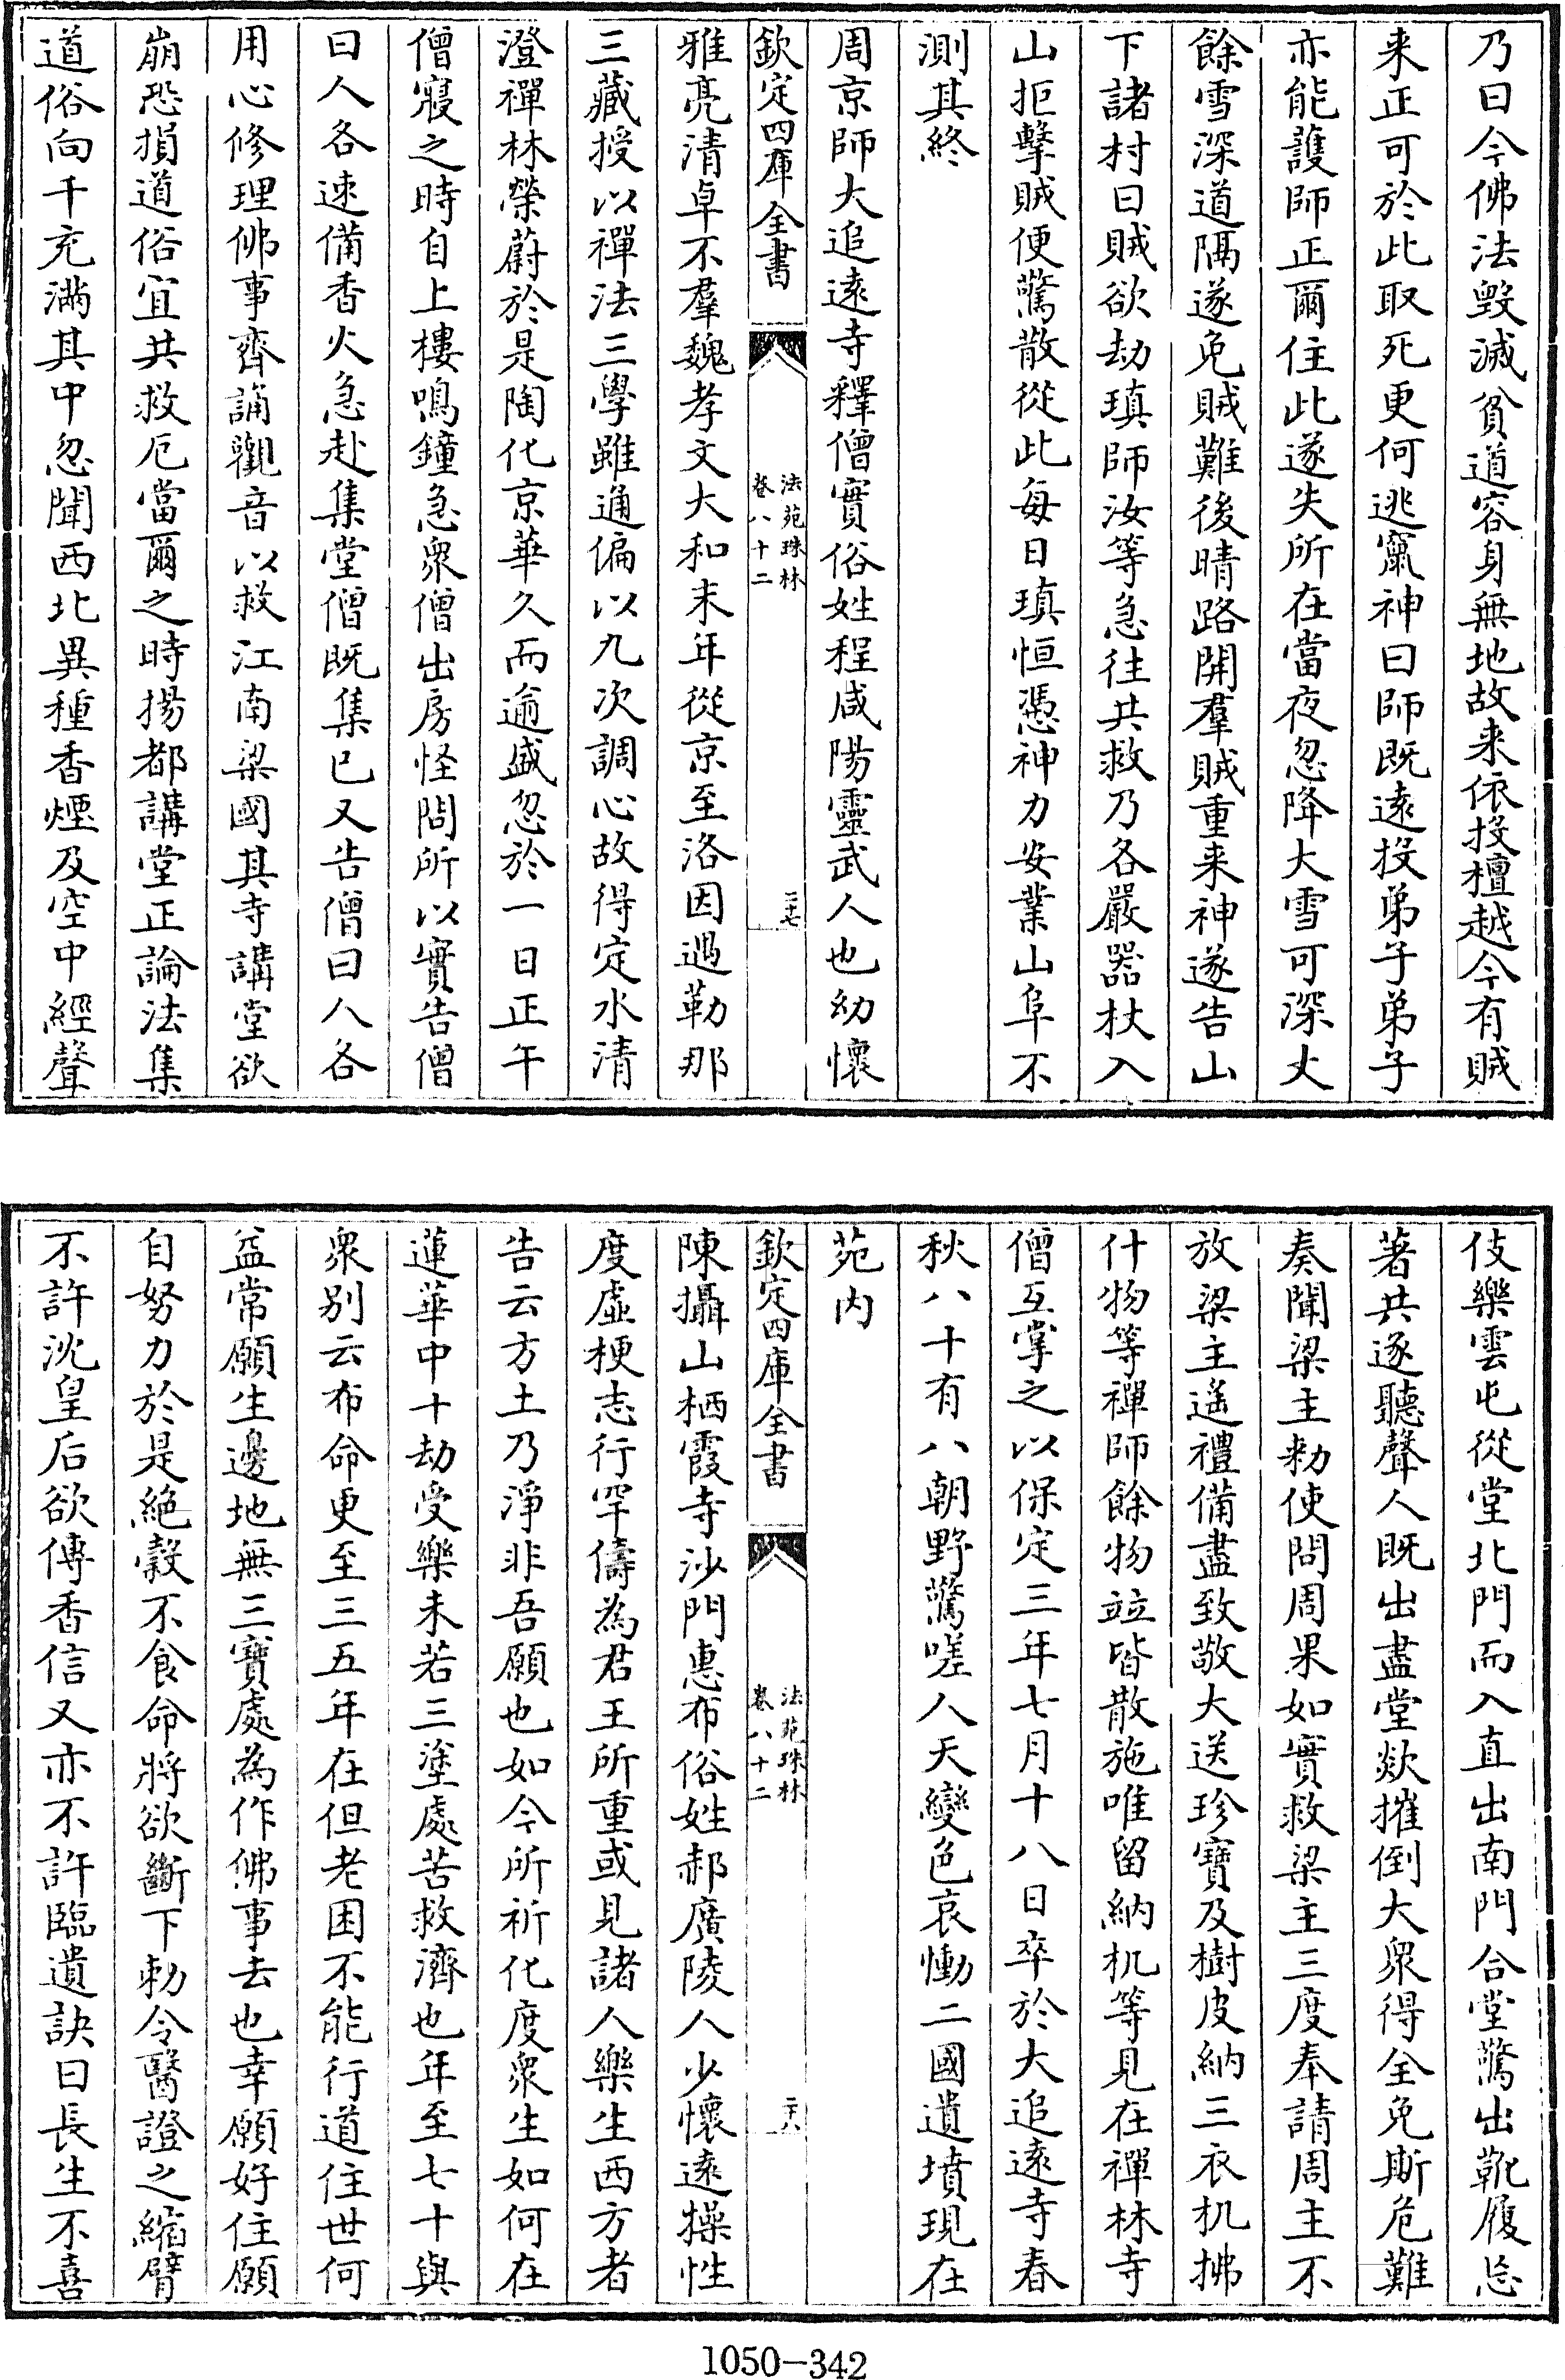 乃曰今佛法毀滅貧道容身無地故来依投檀越今有賊
来正可於此取死更何逃竄神曰師既遠投弟子弟子
亦能護師正爾住此遂失所在當夜忽降大雪可深丈
餘雪深道隔遂免賊難後晴路開羣賊重来神遂告山
下諸村曰賊欲劫瑱師汝等急往共救乃各嚴器杖入
山拒擊賊便驚散從此每日瑱恒憑神力安業山阜不
測其終
周京師大追遠寺釋僧實俗姓程咸陽靈武人也幼懷
欽定四庫全書
法苑珠林
卷八十二
二十七
雅亮清卓不羣魏孝文大和末年從京至洛因遇勒那
三藏授以禪法三學雖通偏以九次調心故得定水清
澄禪林榮蔚於是陶化京華久而逾盛忽於一日正午
僧寢之時自上樓鳴鐘急衆僧出房怪問所以實告僧
曰人各速備香火急赴集堂僧既集已又告僧曰人各
用心修理佛事齊誦觀音以救江南梁國其寺講堂欲
崩恐損道俗宜共救厄當爾之時揚都講堂正論法集
道俗向千充滿其中忽聞西北異種香煙及空中經聲
伎樂雲屯從堂北門而入直出南門合堂驚出靴履忘
著共逐聽聲人既出盡堂欻摧倒大衆得全免斯危難
奏聞梁主勑使問周果如實救梁主三度奉請周主不
放梁主遙禮備盡致敬大送珍寶及樹皮納三衣机拂
什物等禪師餘物竝皆散施唯留納机等見在禪林寺
僧互掌之以保定三年七月十八日卒於大追遠寺春
秋八十有八朝野驚嗟人天變色哀慟二國遺墳現在
苑内
欽定四庫全書
法苑珠林
卷八十二
二十八
陳攝山栖霞寺沙門惠布俗姓郝廣陵人少懷遠操性
度虛梗志行罕儔為君王所重或見諸人樂生西方者
告云方土乃淨非吾願也如今所祈化度衆生如何在
蓮華中十劫受樂未若三塗處苦救濟也年至七十與
衆別云布命更至三五年在但老困不能行道住世何
益常願生邊地無三寶處為作佛事去也幸願好住願
自努力於是絕穀不食命將欲斷下勅令醫證之縮臂
不許沈皇后欲傳香信又亦不許臨遺訣曰長生不喜
1050-342